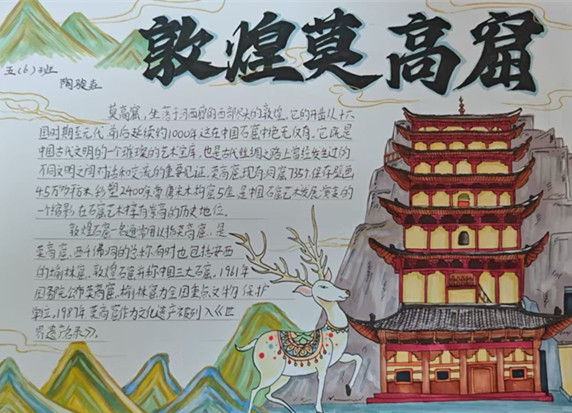 敦煌莫高窟
五(6)班
莫高窟,坐落于河西走廊西部尽头的敦煌,它的开凿从十六
国时期至元代,前后延续约1000年,这在中国石窟中绝无仅有。它既是
中国古代文明的一个璀璨的艺术宝库,也是古代丝绸之路上曾经发生过的
不同文明之间对话和交流的重要见证。莫高窟现有洞窟735个,保存壁画
4.5万平方米,彩塑2400余尊,唐宋木构窟5座,是中国石窟艺术发展演变的
一个缩影,在石窟艺术中享有崇高的历史地位。
敦煌石窟一般通常以指莫高窟,是
莫高窟、西千佛洞的总称,有时也包括安西
的榆林窟。敦煌石窟亦称中国三大石窟。1961年
国务院公布莫高窟、榆林窟为全国重点文物保护
单位,1987年莫高窟作为文化遗产被列入《世
界遗产名录》。